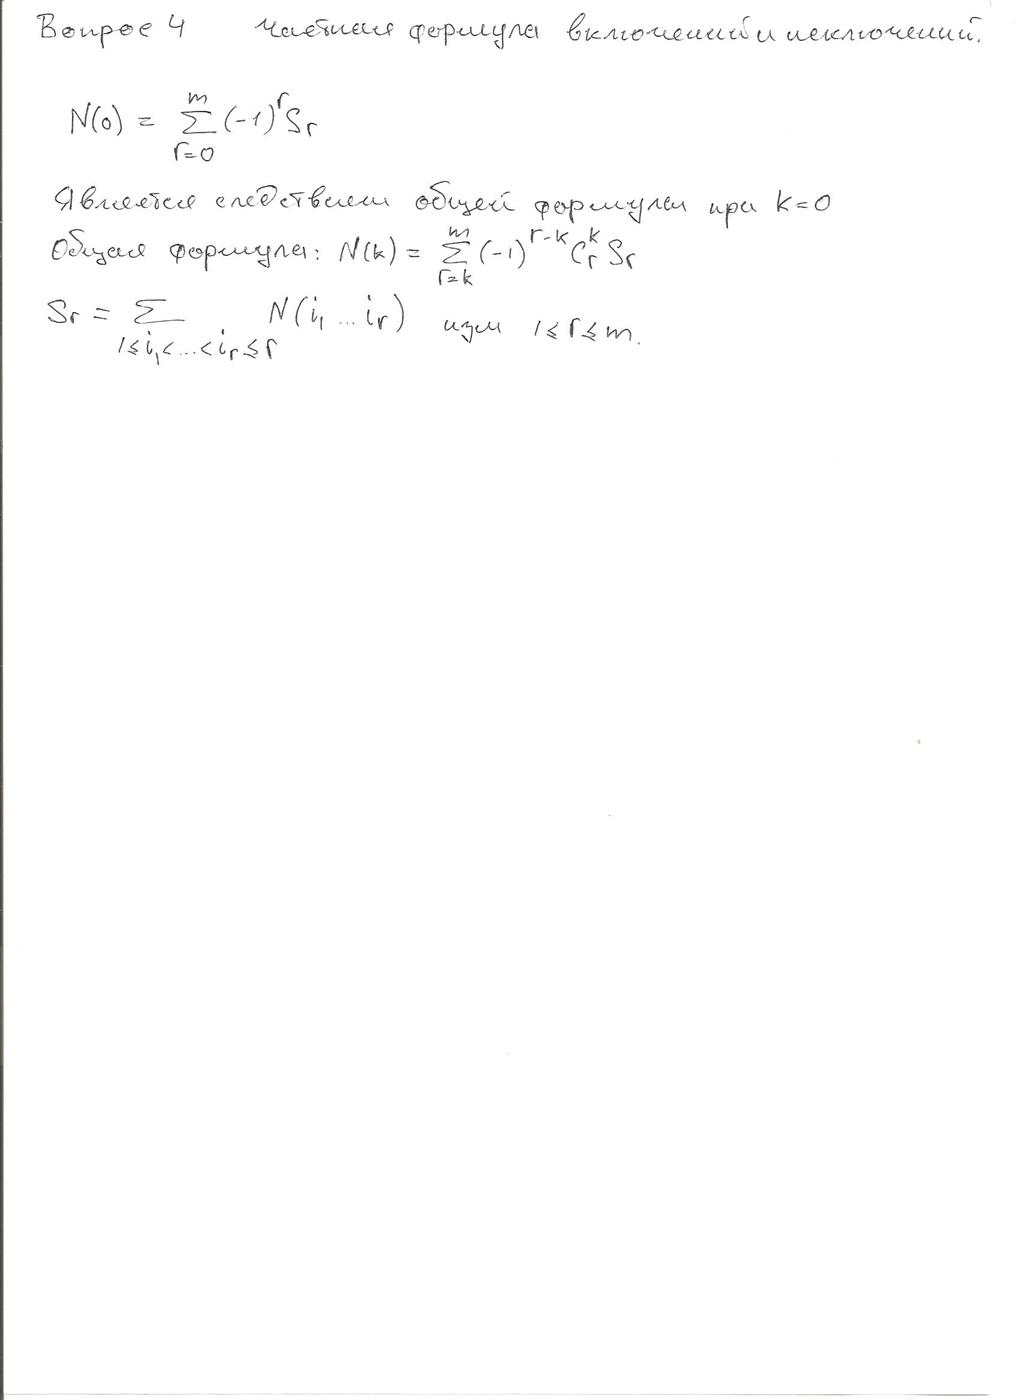 Вопрос 4 Частная формула включений и исключений.
N(0) = \sum_{r=0}^{m} (-1)^r S_r
Является следствием общей формулы при k=0
Общая формула: N(k) = \sum_{r=k}^{m} (-1)^{r-k} C_r^k S_r
S_r = \sum_{1≤i_1<...<i_r≤r} N(i_1 ... i_r) при 1≤r≤m.